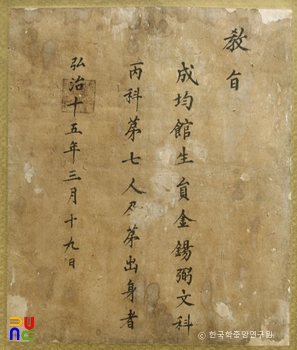 教旨
成均館生員金錫弼文科
丙科第七人及第出身者
弘治十五年三月十九日
© 한국학중앙연구원